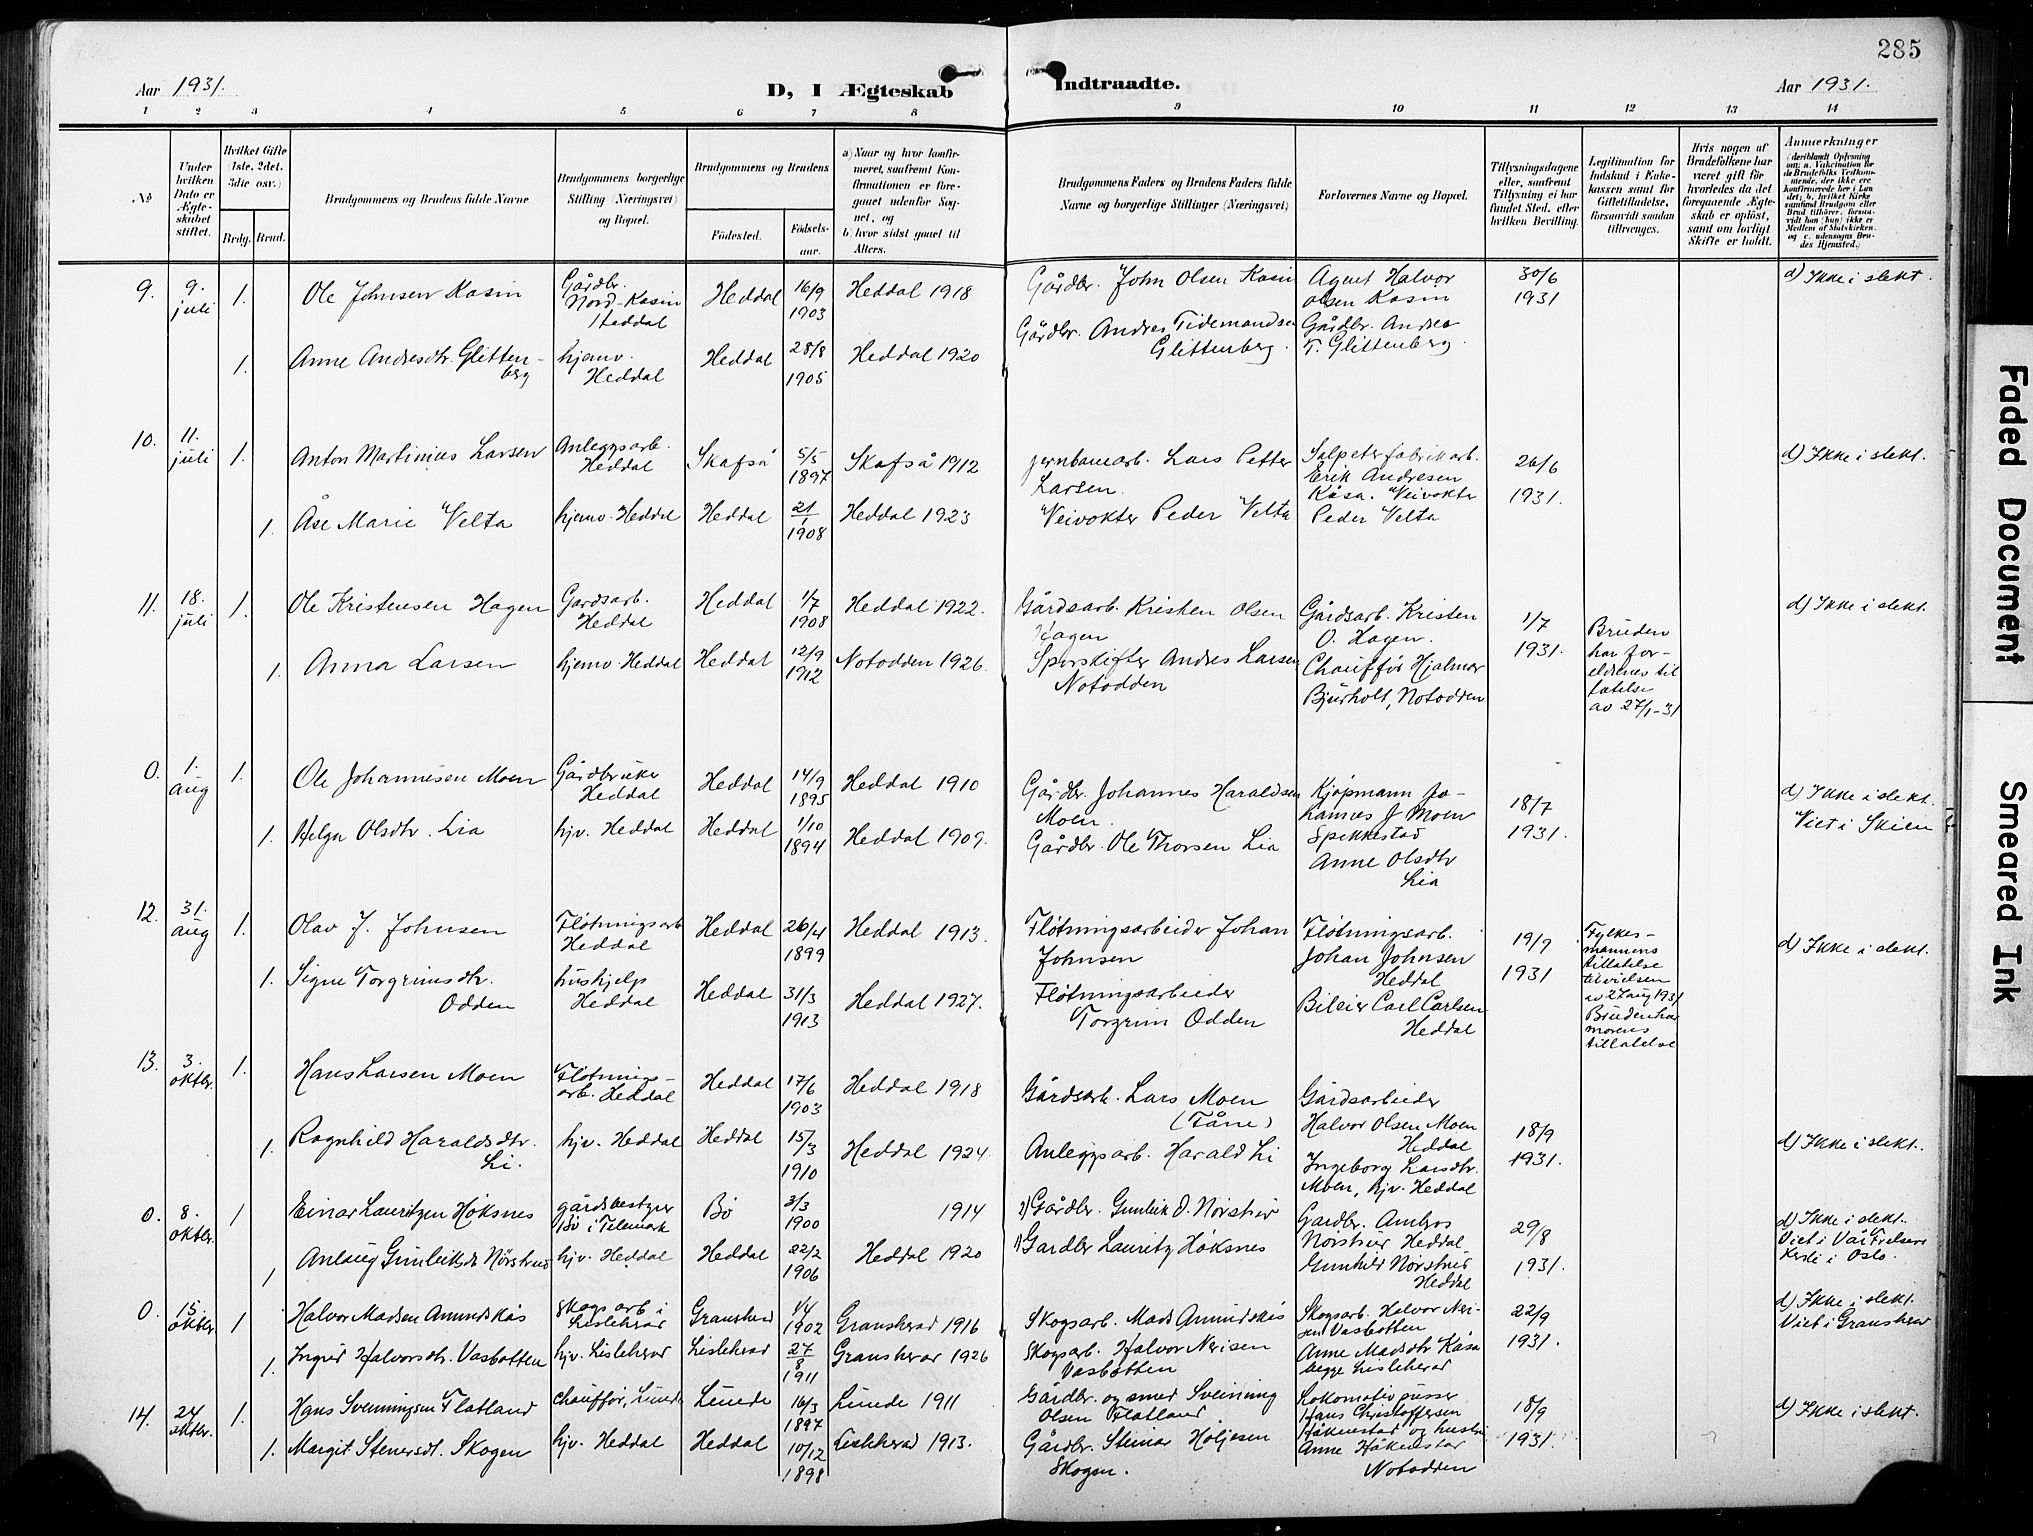 285
Aar 1931.
D, I Ægteskab Indtraadte.
Aar 1931.
1 2 3 4 5 6 7 8 9 10 11 12 13 14
No
Under hvilken Dato er Ægteskabet stiftet.
Hvilket Gifte (1ste, 2det, 3die osv.)
Brdg. Brud.
Brudgommens og Brudens fulde Navne
Brudgommens borgerlige Stilling (Næringsvei) og Bopæl.
Brudgommens og Brudens
Fødested.
Fødselsaar.
a) Naar og hvor konfirmeret, saafremt Konfirmationen er foregaaet udenfor Sognet, og
b) hvor sidst gaaet til Alters.
Brudgommens Faders og Brudens Faders fulde Navne og borgerlige Stillinger (Næringsvei)
Forlovernes Navne og Bopæl.
Tillysningsdagene eller, saafremt Tillysning ei har fundet Sted, efter hvilken Bevilling.
Legitimation for Indskud i Enkekassen samt for Giftetilladelse, forsaavidt saadan tiltrænges.
Hvis nogen af Brudefolkene har været gift før hvorledes da det foregaaende Ægteskab er opløst, samt om lovligt Skifte er holdt.
Anmærkninger
(deriblandt Oplysning om: a. Vakcination for de Brudefolks Vedkommende, der ikke ere konfirmerede her i Landet; b. hvilket Kirkesamfund Brudgom eller Brud tilhører, forsaavidt han (hun) ikke er Medlem af Statskirken, og c. udensogns Brudes Hjemsted.)
9. 9. juli 1. Ole Johnsen Kasin Gårdbr. Nord-Kasin Heddal Heddal 16/9 1903 Heddal 1918 Gårdbr. John Olsen Kasin Agent Halvor Olsen Kasin 30/6 1931 d) Ikke i slekt.
1. Anne Andresdtr. Glittenberg hjemv. Heddal Heddal 28/8 1905 Heddal 1920 Gårdbr. Andres Tidemandsen Glittenberg. Gårdbr. Andres T. Glittenberg.
10. 11. juli 1. Anton Martinius Larsen Anleggsarb. Heddal Skafså 5/5 1897 Skafså 1912 jernbanearb. Lars Petter Larsen. Salpeterfabrikarb. Erik Andresen Kåsa. 26/6 1931. d) Ikke i slekt.
1. Åse Marie Velta hjemv. Heddal Heddal 21/1 1908 Heddal 1923 Veivokter Peder Velta Veivokter Peder Velta
11. 18. juli 1. Ole Kristensen Hagen Gardsarb. Heddal Heddal 1/7 1908 Heddal 1922. Gårdsarb. Kristen Olsen Hagen Gårdsarb. Kristen O. Hagen. 1/7 1931. Bruden har foreldrenes tilatelse av 27/1-31 d) Ikke i slekt.
1. Anna Larsen hjemv. Heddal Heddal 12/9 1912 Notodden 1926. Sporskifter Andres Larsen Notodden Chauffør Hjalmar Bjurholt, Notodden
0. 1. aug 1. Ole Johannesen Moen Gårdbruker Heddal Heddal 14/9 1895 Heddal 1910 Gårdbr. Johannes Haraldsen Moen. Kjøpmann Johannes J Moen Spikkestad 18/7 1931. d) Ikke i slekt. Viet i Skien
1. Helga Olsdtr. Lia hjv. Heddal Heddal 1/10 1894 Heddal 1909. Gårdbr. Ole Thorsen Lia Anne Olsdtr Lia
12. 31. aug 1. Olav J. Johnsen Fløtningsarb Heddal Heddal 26/4 1899 Heddal 1913. Fløtningsarbeider Johan Johnsen Fløtningsarb. Johan Johnsen Heddal 19/9 1931 Fylkesmannens tillatelse til vielsen av 27 aug 1931 Bruden har morens tillatelse d) Ikke i slekt.
1. Signe Torgrimsdtr. Odden hushjelp Heddal Heddal 31/3 1913 Heddal 1927. Fløtningsarbeider Torgrim Odden Bileier Carl Carlsen Heddal
13. 3. oktbr. 1. Hans Larsen Moen Fløtningsarb. Heddal Heddal 17/6 1903 Heddal 1918 Gårdsarb. Lars Moen (Tåne) Gårdsarbeider Halvor Olsen Moen Heddal 18/9 1931. d) Ikke i slekt.
1. Ragnhild Haraldsdtr. Li. hjv. Heddal Heddal 15/3 1910 Heddal 1924. Anleggsarb. Harald Li Ingeborg Larsdtr. Moen, hjv. Heddal
0. 8. oktbr. 1 Einar Lauritzen Høksnes gårdsbestyrer Bø i Telemark Bø 3/3 1900 1914 2) Gårdbr. Gunleik O. Nørstrud Gardbr. Ambros Nørstrud Heddal. 29/8 1931. d) Ikke i slekt. Viet i Vår Frelsers Kirke i Oslo.
1 Anlaug Gunleiksdtr Nørstrud hjv. Heddal Heddal 22/2 1906 Heddal 1920 1) Gardbr Lauritz Høksnes Gunhild Nørstrud Heddal
0. 15. oktbr 1 Halvor Madsen Amundskås Skogsarb i Lisleherad Gransherad 1/4 1902 Gransherad 1916 Skogsarb. Mads Amundskås Skogsarb. Halvor Nerisen Vasbotten 22/9 1931. d) Ikke i slekt. Viet i Gransherad
1. Ingrid Halvorsdtr. Vasbotten hjv. Lisleherad Lisleherad 27/8 1911 Gransherad 1926 Skogsarb. Halvor Nerisen Vasbotten Anne Madsdtr Kåsa begge Lisleherad
14. 24 oktbr. 1. Hans Sveinungsen Flatland Chauffør, Lunde Lunde 16/3 1897 Lunde 1911 Gårdbr. og smed Sveinung Olsen Flatland. Lokomotivpusser Hans Christoffersen Håkenstad og hustru 18/9 1931. d) Ikke i slekt.
1. Margit Stenersdt. Skogen hjv. Heddal Heddal 10/12 1898 Lisleherad 1913. Gårdbr. Steinar Holjesen Skogen. Anne Håkenstad Notodden
Faded Document
Smeared Ink